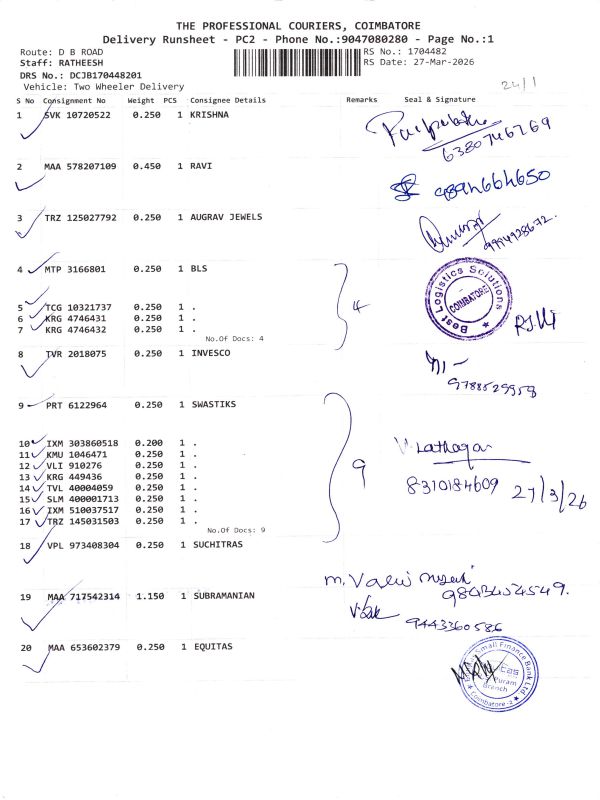 THE PROFESSIONAL COURIERS, COIMBATORE
Delivery Runsheet - PC2 - Phone No.:9047080280 - Page No.:1
Route: D B ROAD
RS No.: 1704482
Staff: RATHEESH
RS Date: 27-Mar-2026
DRS No.: DCJB170448201
Vehicle: Two Wheeler Delivery
24/1
S No Consignment No Weight PCS Consignee Details Remarks Seal & Signature
1 SVK 10720522 0.250 1 KRISHNA
6380746769
2 MAA 578207109 0.450 1 RAVI
9894664650
3 TRZ 125027792 0.250 1 AUGRAV JEWELS
9994928672.
4 MTP 3166801 0.250 1 BLS
Best Logistics Solutions
COIMBATORE
5 TCG 10321737 0.250 1 .
4
6 KRG 4746431 0.250 1 .
7 KRG 4746432 0.250 1 .
No.Of Docs: 4
8 TVR 2018075 0.250 1 INVESCO
9788529958
9 PRT 6122964 0.250 1 SWASTIKS
10 IXM 303860518 0.200 1 .
11 KMU 1046471 0.250 1 .
12 VLI 910276 0.250 1 .
9
13 KRG 449436 0.250 1 .
14 TVL 40004059 0.250 1 .
8310184609 27/3/26
15 SLM 400001713 0.250 1 .
16 IXM 510037517 0.250 1 .
17 TRZ 145031503 0.250 1 .
No.Of Docs: 9
18 VPL 973408304 0.250 1 SUCHITRAS
19 MAA 717542314 1.150 1 SUBRAMANIAN
9843454549.
9443360586
20 MAA 653602379 0.250 1 EQUITAS
Small Finance Bank Ltd
Puram
Branch
Coimbatore-2